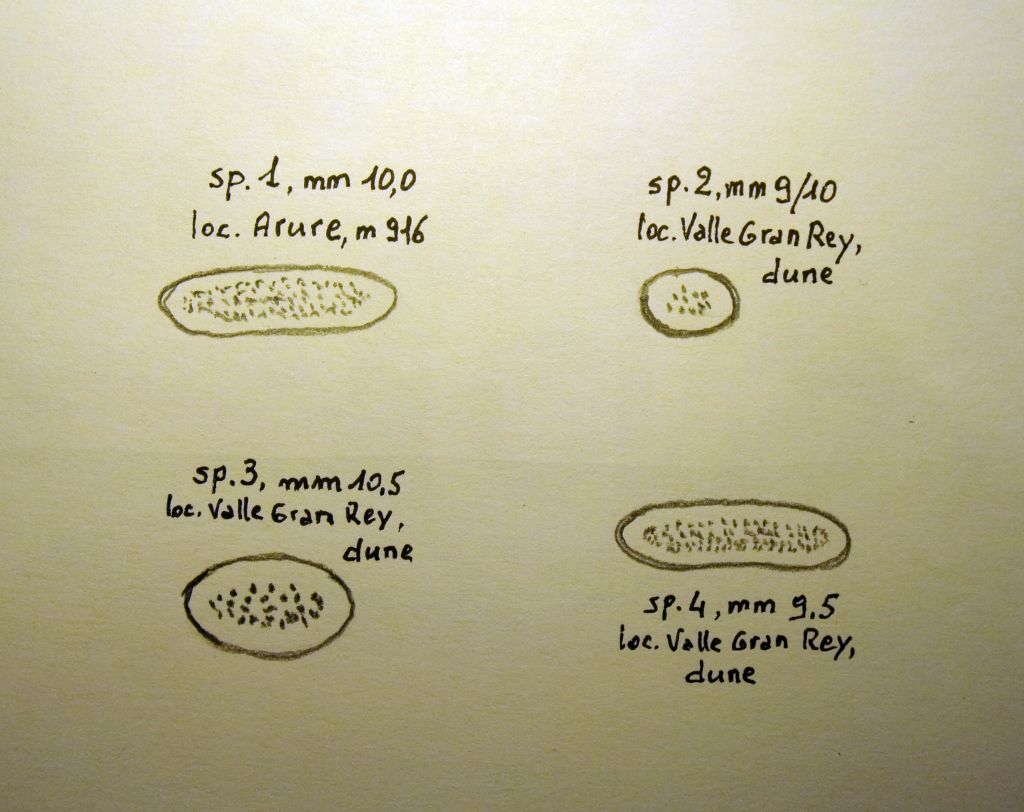 sp. 1, mm 10,0
loc. Arure, m 916
sp. 2, mm 9/10
loc. Valle Gran Rey,
dune
sp. 3, mm 10,5
loc. Valle Gran Rey,
dune
sp. 4, mm 9,5
loc. Valle Gran Rey,
dune